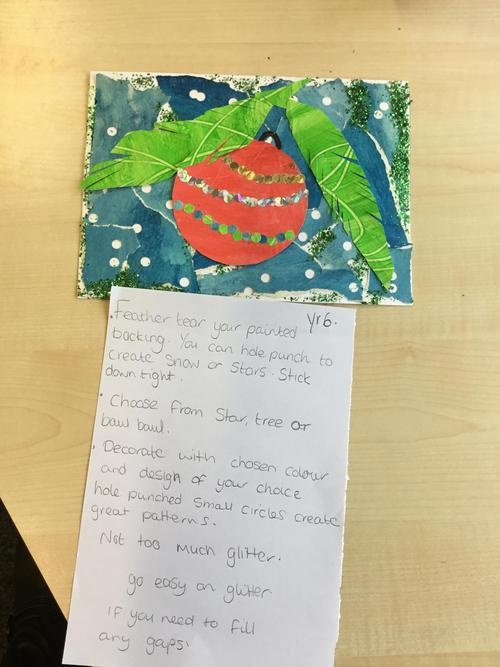 yr6.
. Feather tear your painted
backing. You can hole punch to
create snow or stars. Stick
down tight.
. Choose from Star, tree or
bawl bawl.
. Decorate with chosen colour
and design of your choice
hole punched small circles create
great patterns.
Not too much glitter.
go easy on glitter.
If you need to fill
any gaps.